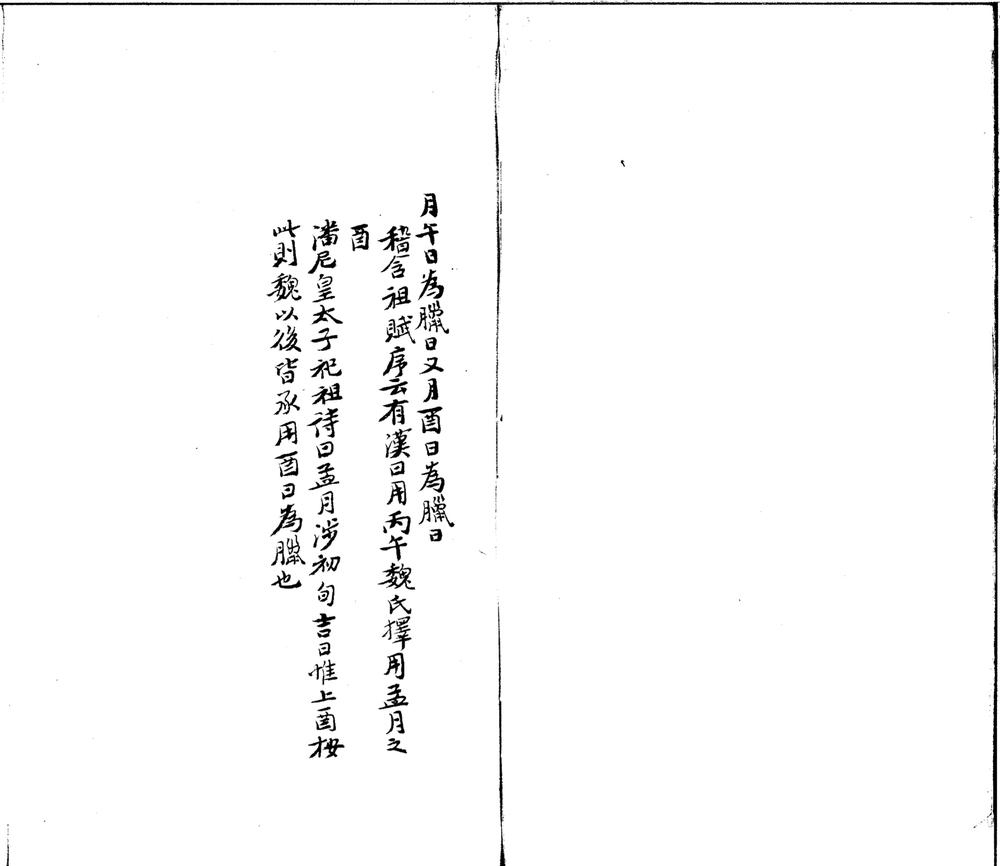 月午日為臘日又月酉日為臘日
嵇含祖賦序云有漢日用丙午魏氏擇用孟月之
酉
潘尼皇太子祀祖詩曰孟月涉初旬吉日惟上酉按
此則魏以後皆承用酉日為臘也